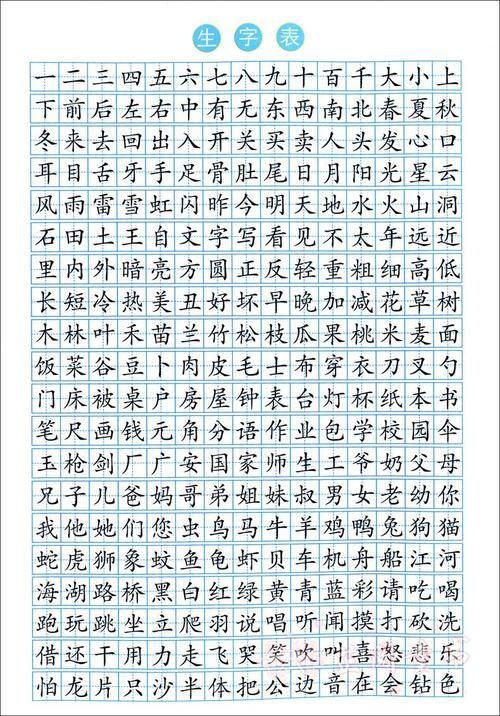 生字表
一二三四五六七八九十百千大小上
下前后左右中有无东西南北春夏秋
冬来去回出入开关买卖人头发心口
耳目舌牙手足骨肚尾日月阳光星云
风雨雷雪虹闪昨今明天地水火山洞
石田土王自文字写看见不太年远近
里内外暗亮方圆正反轻重粗细高低
长短冷热美丑好坏早晚加减花草树
木林叶禾苗兰竹松枝瓜果桃米麦面
饭菜谷豆卜肉皮毛士布穿衣刀叉勺
门床被桌户房屋钟表台灯杯纸本书
笔尺画钱元角分语作业包学校园伞
玉枪剑厂广安国家师生工爷奶父母
兄子儿爸妈哥弟姐妹叔男女老幼你
我他她们您虫鸟马牛羊鸡鸭兔狗猫
蛇虎狮象蚊鱼龟虾贝车机舟船江河
海湖路桥黑白红绿黄青蓝彩请吃喝
跑玩跳坐立爬羽说唱听闻摸打砍洗
借还干用力走飞哭笑吹叫喜怒悲乐
怕龙片只沙半体把公边音在会钻色